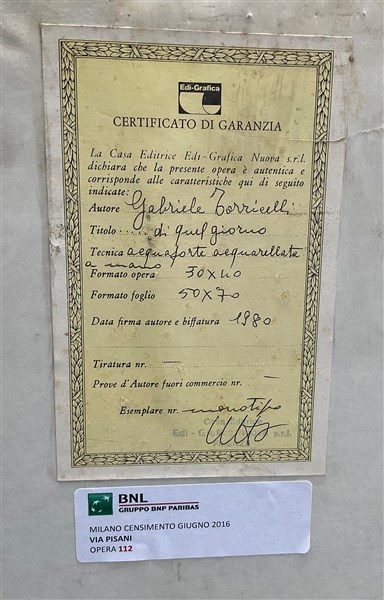 Edi-Grafica
CERTIFICATO DI GARANZIA
La Casa Editrice Edi-Grafica Nuova s.r.l.
dichiara che la presente opera è autentica e
corrisponde alle caratteristiche qui di seguito
indicate:
Autore Gabriele Torricelli
Titolo ..... di quel giorno
Tecnica acquaforte acquarellata
a mano
Formato opera 30x40
Formato foglio 50x70
Data firma autore e biffatura 1980
Tiratura nr. —
Prove d'Autore fuori commercio nr. —
Esemplare nr. monotipo
Edi - s.r.l.
BNL
GRUPPO BNP PARIBAS
MILANO CENSIMENTO GIUGNO 2016
VIA PISANI
OPERA 112